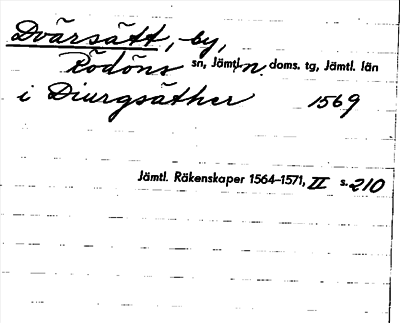 Dvärsätt, by,
Rödöns sn, Jämtl. n. doms. tg, Jämtl. län
i Diurgsäther 1569
Jämtl. Räkenskaper 1564-1571, II s. 210